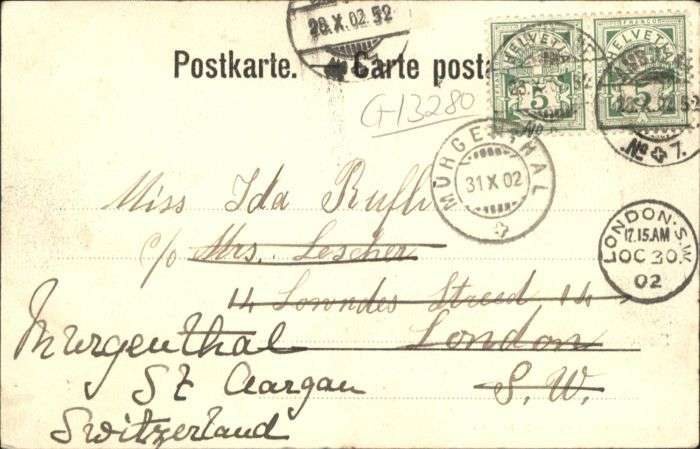 28.X.02.52
Postkarte. Carte posta
FRANCO FRANCO
HELVETIA HELVETIA
5 5
G-13280
No No 7.
MURGENTHAL
31 X 02
Miss Ida Rufli
LONDON.S.W.
12.15AM
OC 30
02
c/o Mrs. Lescher
14 Lowndes Street 14
Murgenthal London
St Aargau S.W.
Switzerland